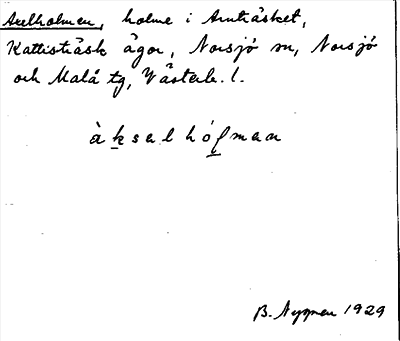 Axelholmen, holme i Arnträsket,
Kattisträsk ägor, Norsjö sn, Norsjö
och Malå tg, Västerb. l.
àksalhólman
B. Nygren 1929